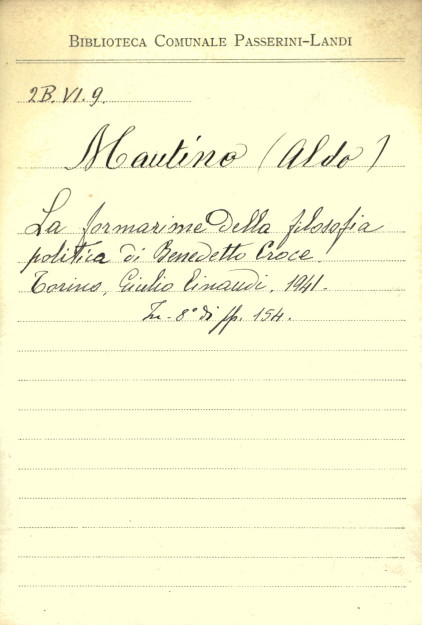 BIBLIOTECA COMUNALE PASSERINI-LANDI
2B. VI. 9.
Mautino (Aldo)
La formazione della filosofia
politica di Benedetto Croce.
Torino, Giulio Einaudi, 1941.
In-8° di pp. 154.